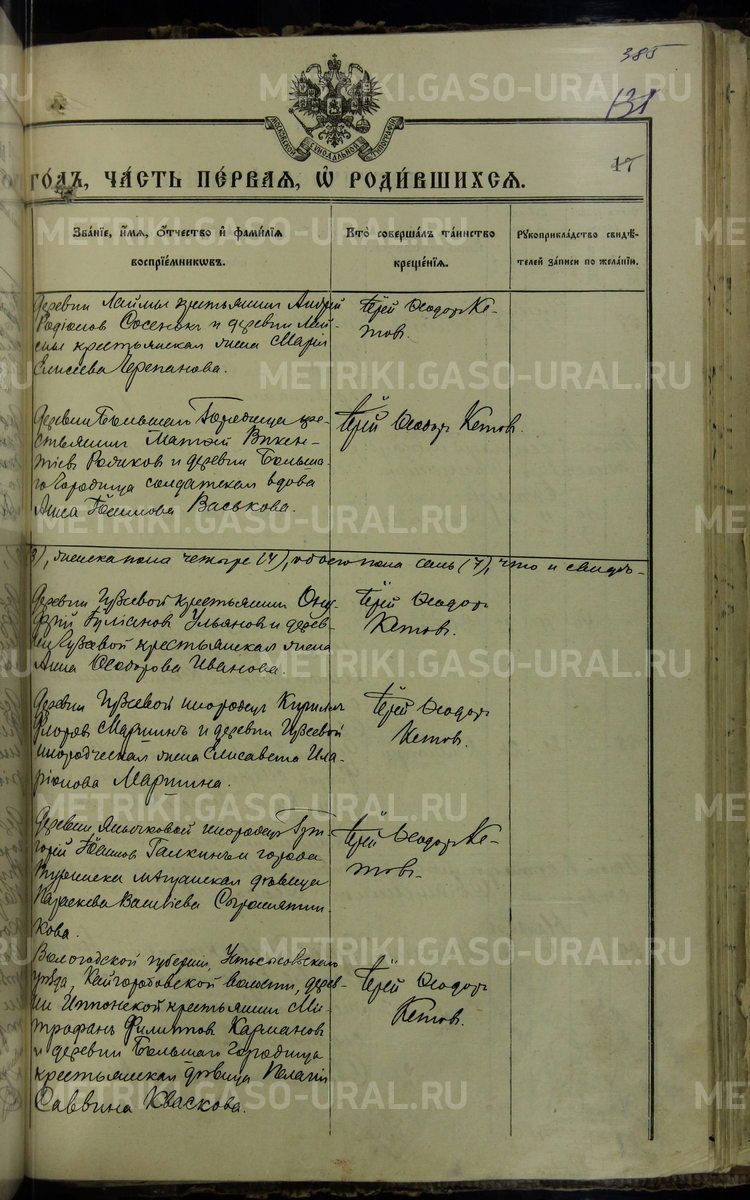 385
131
17
МОСКОВСКОЙ СѶНОДАЛЬНОЙ ТИПОГРАФІИ
ГО́ДЪ, ЧА́СТЬ ПЕ́РВАЯ, Ѡ҆ РОДИ́ВШИХСЯ.
Зва́нїе, и҆́мѧ, ѻ҆́тчество и҆ фами́лїѧ воспрїе́мникѡвъ.
Кто̀ соверша́лъ та́инство креще́нїѧ.
Рꙋкоприкла́дство свидѣ́телей за́писи по жела́нїю.
Деревни Лаймы крестьянинъ Андрей
Родіоновъ Сосенинъ и деревни Лай-
мы крестьянская жена Марія
Елисеева Черепанова.
Іерей Ѳеодоръ Ке-
товъ.
Деревни Большаго Городища кре-
стьянинъ Матѳій Викен-
тіевъ и деревни Больша-
го Городища солдатская вдова
Анна Васькова.
Іерей Ѳеодоръ Кетовъ.
3), женска пола четыре (4), обоего пола семь (7), что и свидѣ-
Деревни крестьянинъ Ону-
фрій Ульяновъ и дерев-
ни крестьянская жена
Анна Ѳеодорова Иванова.
Іерей Ѳеодоръ
Кетовъ.
Деревни инородецъ Кириллъ
Флоровъ и деревни
инородческая жена Елисавета Ила-
ріонова
Іерей Ѳеодоръ
Кетовъ.
Деревни инородецъ Гри-
горій Галкинъ и города
Туринска мѣщанская дѣвица
Параскева Васильева
кова.
Іерей Ѳеодоръ Ке-
товъ.
Вологодской губерніи, Устьсысольскаго
уѣзда, Кайгородской волости, дерев-
ни крестьянинъ Ми-
трофанъ Филипповъ Кармановъ
и деревни Большаго Городища
крестьянская дѣвица Пелагія
Саввина Кваскова.
Іерей Ѳеодоръ
Кетовъ.
METRIKI.GASO-URAL.RU